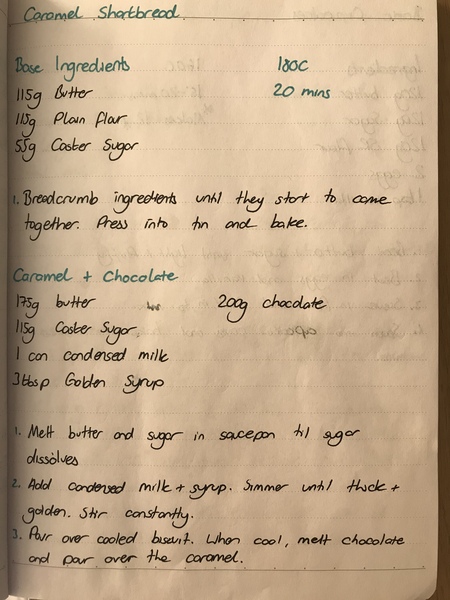 Caramel Shortbread.
Base Ingredients 180C
115g Butter 20 mins
115g Plain flour
55g Caster Sugar
1. Breadcrumb ingredients until they start to come
together. Press into tin and bake.
Caramel + Chocolate
175g butter 200g chocolate
115g Caster Sugar
1 can condensed milk
3 tbsp Golden Syrup
1. Melt butter and sugar in saucepan til sugar
dissolves
2. Add condensed milk + syrup. Simmer until thick +
golden. Stir constantly.
3. Pour over cooled biscuit. When cool, melt chocolate
and pour over the caramel.